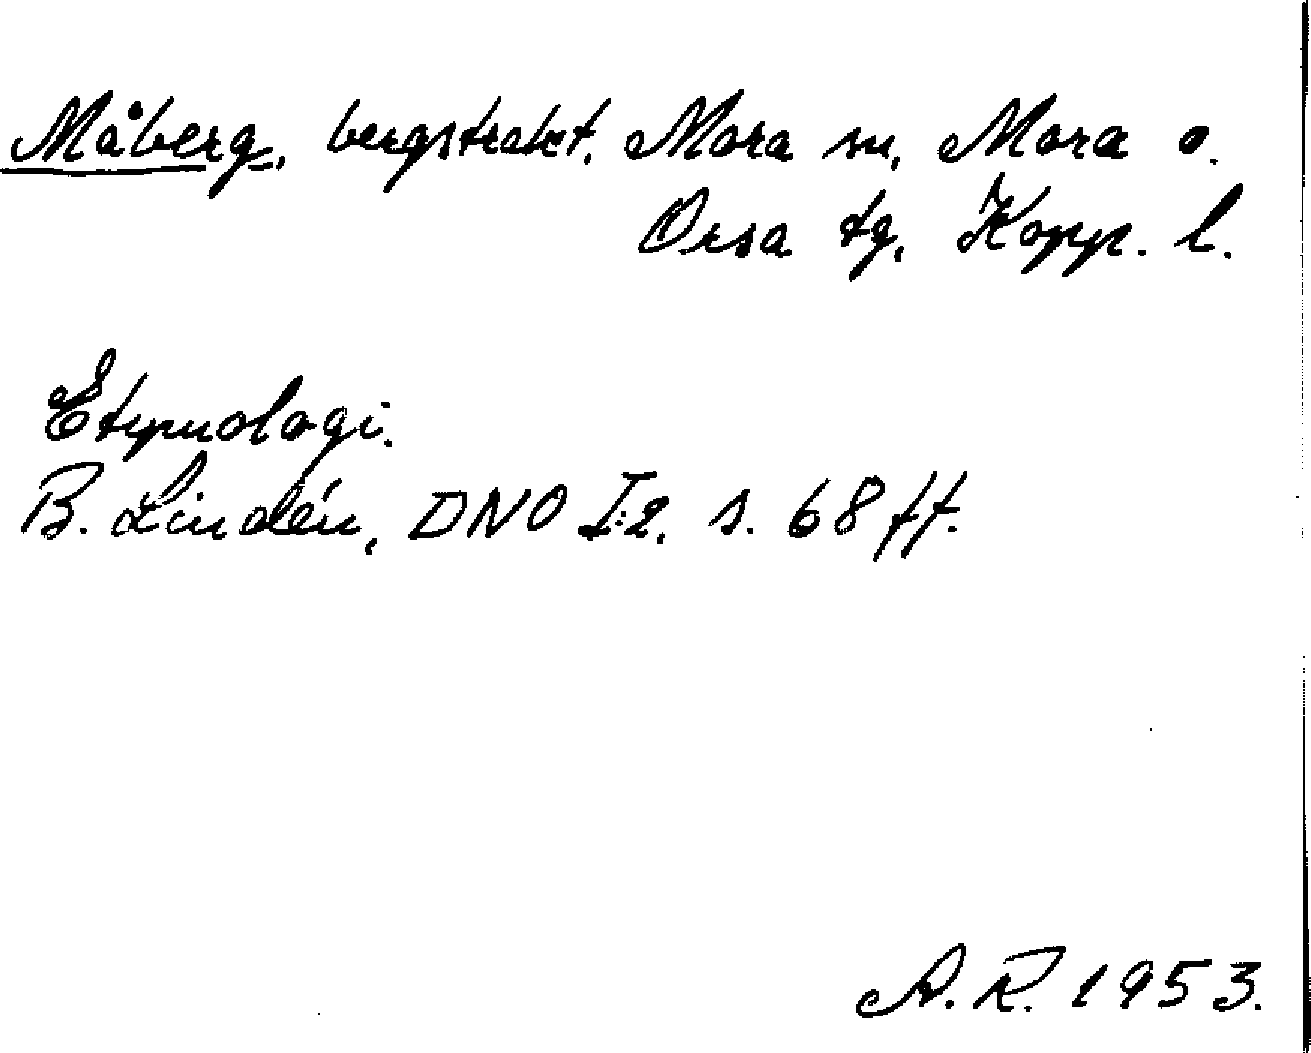 Måberg, bergstrakt. Mora sn, Mora o.
Orsa tg, Kopp. l.
Etymologi.
B. Lindén, DNO I:2. s. 68 ff.
A. R. 1953.